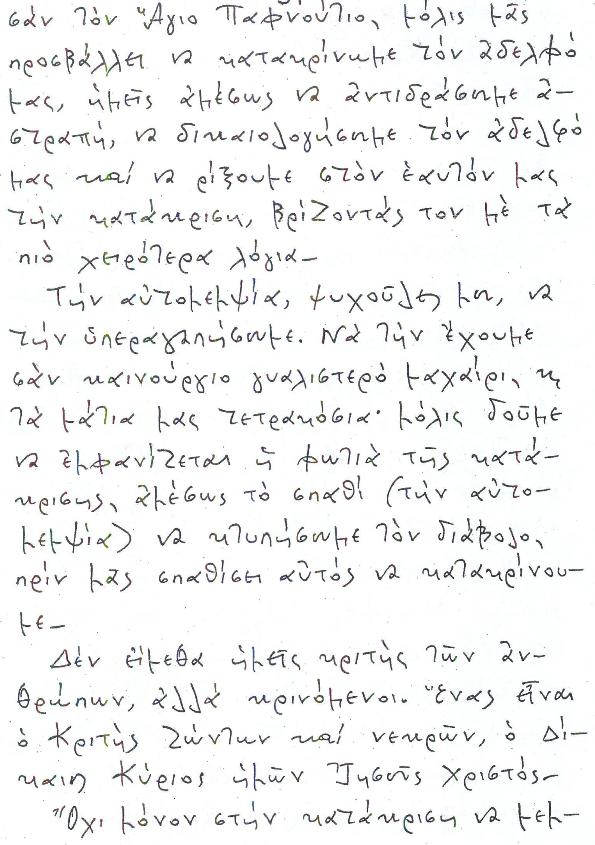 σάν τὸν Ἅγιο Παφνούτιο, μόλις μᾶς
προσβάλλει νὰ κατακρίνωμε τὸν ἀδελφό
μας, ἡμεῖς ἀμέσως νὰ ἀντιδράσωμε ἀ-
στραπή, νὰ δικαιολογήσωμε τὸν ἀδελφό
μας καί νὰ ρίξουμε στὸν ἑαυτόν μας
τὴν κατάκριση, βρίζοντάς τον μὲ τὰ
πιὸ χειρότερα λόγια-
Τὴν αὐτομεμψία, ψυχούλες μου, νὰ
τὴν ὑπεραγαπήσωμε. Νὰ τὴν ἔχουμε
σὰν καινούργιο γυαλιστερό μαχαίρι, κ
τὰ μάτια μας τετρακόσια· μόλις δοῦμε
νὰ ἐμφανίζεται ἡ φωτιὰ τῆς κατά-
κρισης, ἀμέσως τὸ σπαθί (τὴν αὐτο-
μεμψία) νὰ κτυπήσωμε τὸν διάβολο,
πρίν μᾶς σπαθίσει αὐτός νὰ κατακρίνου-
με-
Δὲν εἴμεθα ἡμεῖς κριτὴς τῶν ἀν-
θρώπων, ἀλλά κρινόμενοι. Ἕνας εἶναι
ὁ Κριτὴς ζώντων καί νεκρῶν, ὁ Δί-
καιος Κύριος ἡμῶν Ἰησοῦς Χριστός-
Ὄχι μόνον στὴν κατάκριση νὰ μεμ-